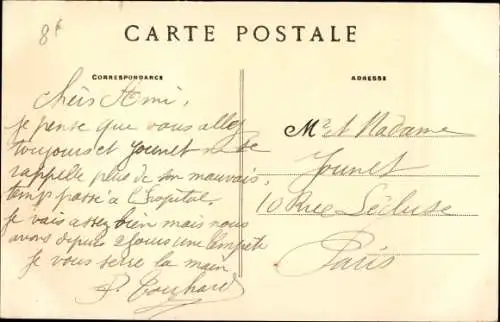 8f
CARTE POSTALE
CORRESPONDANCE
ADRESSE
Chers Ami,
je pense que vous allez
toujours et Jounet ne se
rappelle plus de son mauvais
temps passé a l'hopital.
je vais assez bien mais nous
avons depuis 2 jours une tempête
je vous serre la main
P.
Mr et Madame
Jounet
10 Rue Lécluse
Paris